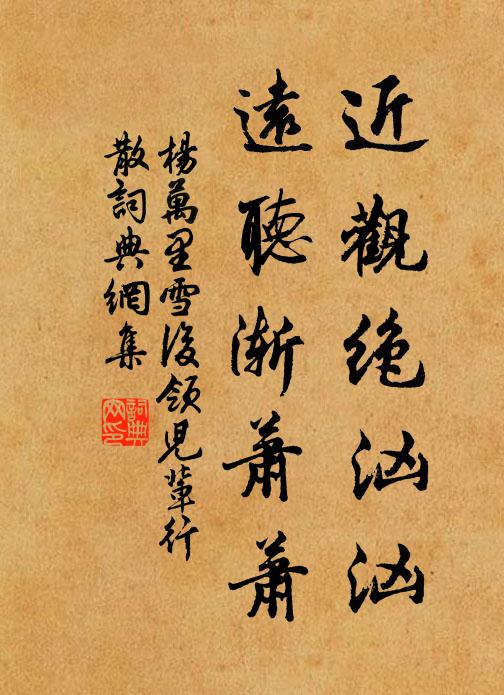 近觀絶洶洶
遠聽漸蕭蕭
楊萬里雪後領兒輩行
散詞典網集
詞典
网印